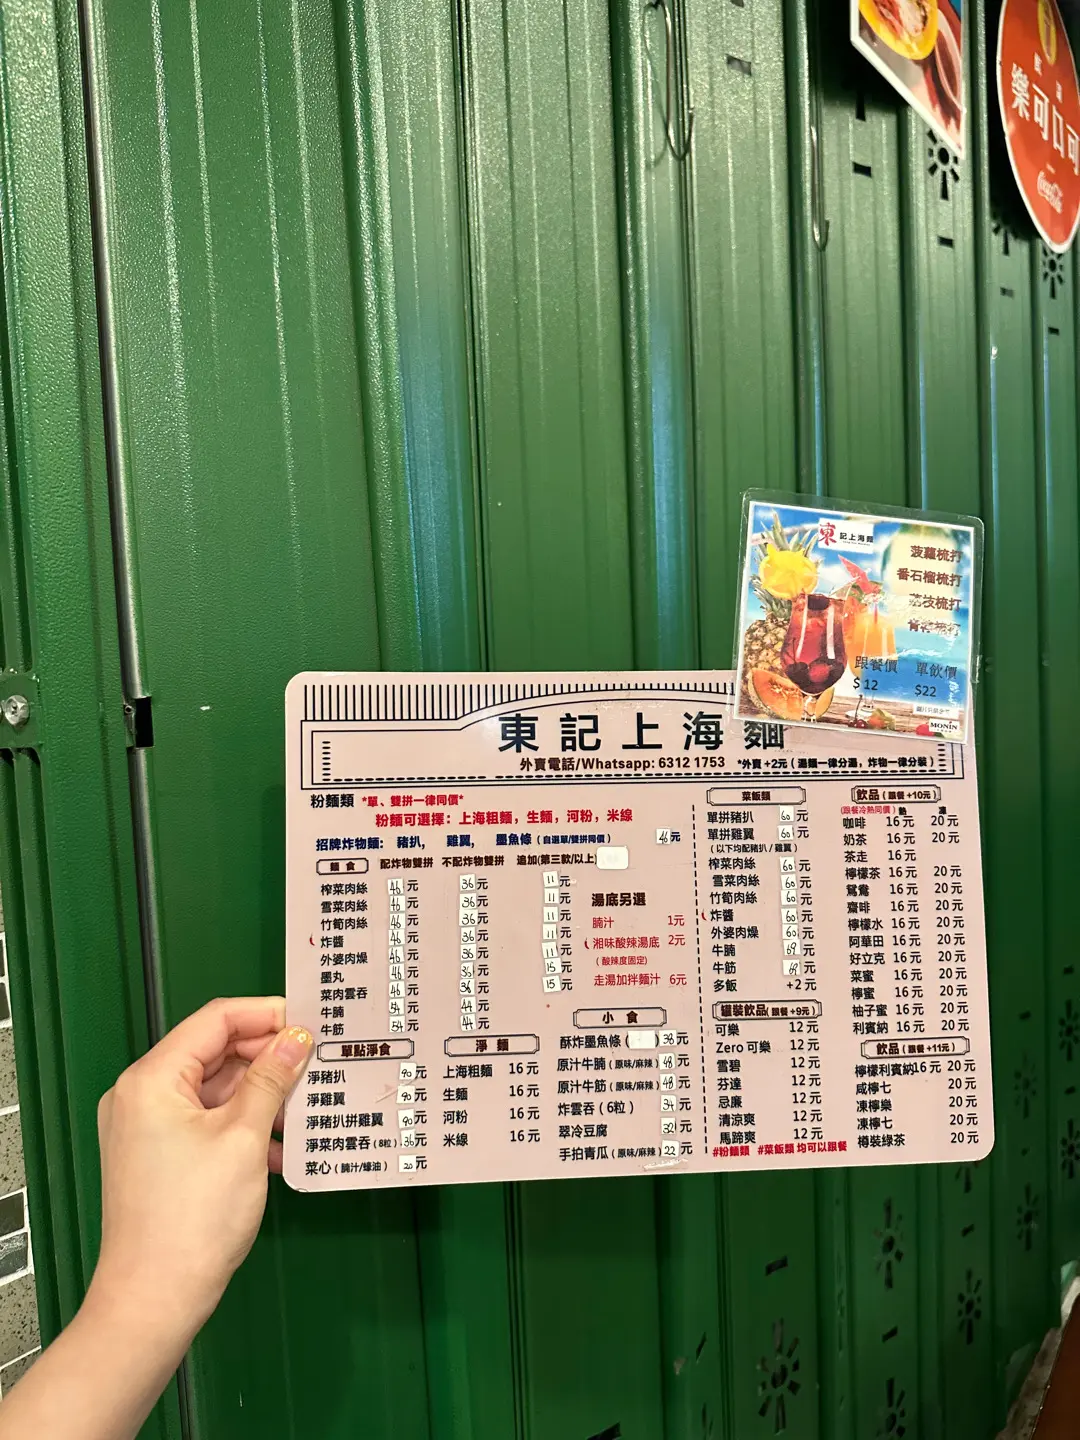 樂可口可
Coca-Cola
東 記上海麵
菠蘿梳打
番石榴梳打
荔枝梳打
跟餐價 單飲價
$12 $22
MONIN
東記上海麵
外賣電話/Whatsapp: 6312 1753 *外賣 +2元 (湯麵一律分湯, 炸物一律分裝)
粉麵類 *單、雙拼一律同價*
粉麵可選擇: 上海粗麵, 生麵, 河粉, 米線
招牌炸物麵: 豬扒, 雞翼, 墨魚條 (自選單/雙拼同價) 46元
麵食 配炸物雙拼 不配炸物雙拼 追加(第三款/以上)
榨菜肉絲 46元 36元 11元
雪菜肉絲 46元 36元 11元
竹筍肉絲 46元 36元 11元
炸醬 46元 36元 11元
外婆肉燥 46元 36元 11元
墨丸 46元 35元 15元
菜肉雲吞 46元 36元 15元
牛腩 54元 44元
牛筋 54元 44元
湯底另選
腩汁 1元
湘味酸辣湯底 2元
(酸辣度固定)
走湯加拌麵汁 6元
單點淨食
淨豬扒 90元
淨雞翼 90元
淨豬扒拼雞翼 90元
淨菜肉雲吞(8粒) 36元
菜心 (腩汁/蠔油) 20元
淨麵
上海粗麵 16元
生麵 16元
河粉 16元
米線 16元
小食
酥炸墨魚條 ( ) 38元
原汁牛腩 (原味/麻辣) 48元
原汁牛筋 (原味/麻辣) 48元
炸雲吞 (6粒) 34元
翠冷豆腐 32元
手拍青瓜 (原味/麻辣) 22元
菜飯類
單拼豬扒 60元
單拼雞翼 60元
(以下均配豬扒 / 雞翼)
榨菜肉絲 60元
雪菜肉絲 60元
竹筍肉絲 60元
炸醬 60元
外婆肉燥 60元
牛腩 69元
牛筋 69元
多飯 +2元
罐裝飲品(跟餐 +9元)
可樂 12元
Zero可樂 12元
雪碧 12元
芬達 12元
忌廉 12元
清涼爽 12元
馬蹄爽 12元
#粉麵類 #菜飯類 均可以跟餐
飲品 (跟餐 +10元)
(跟餐冷熱同價) 熱 凍
咖啡 16元 20元
奶茶 16元 20元
茶走 16元
檸檬茶 16元 20元
鴛鴦 16元 20元
齋啡 16元 20元
檸檬水 16元 20元
阿華田 16元 20元
好立克 16元 20元
菜蜜 16元 20元
檸蜜 16元 20元
柚子蜜 16元 20元
利賓納 16元 20元
飲品 (跟餐 +11元)
檸檬利賓納16元 20元
咸檸七 20元
凍檸樂 20元
凍檸七 20元
樽裝綠茶 20元